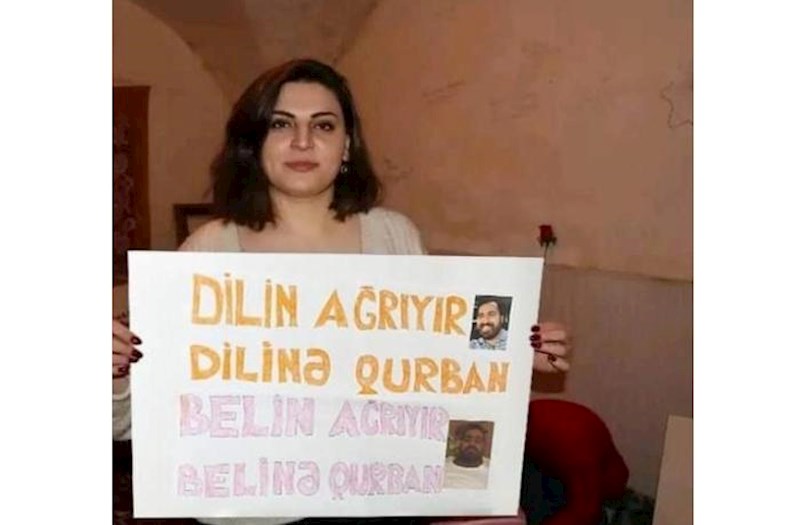 DİLİN AĞRIYIR
DİLİNƏ QURBAN
BELİN AĞRIYIR
BELİNƏ QURBAN